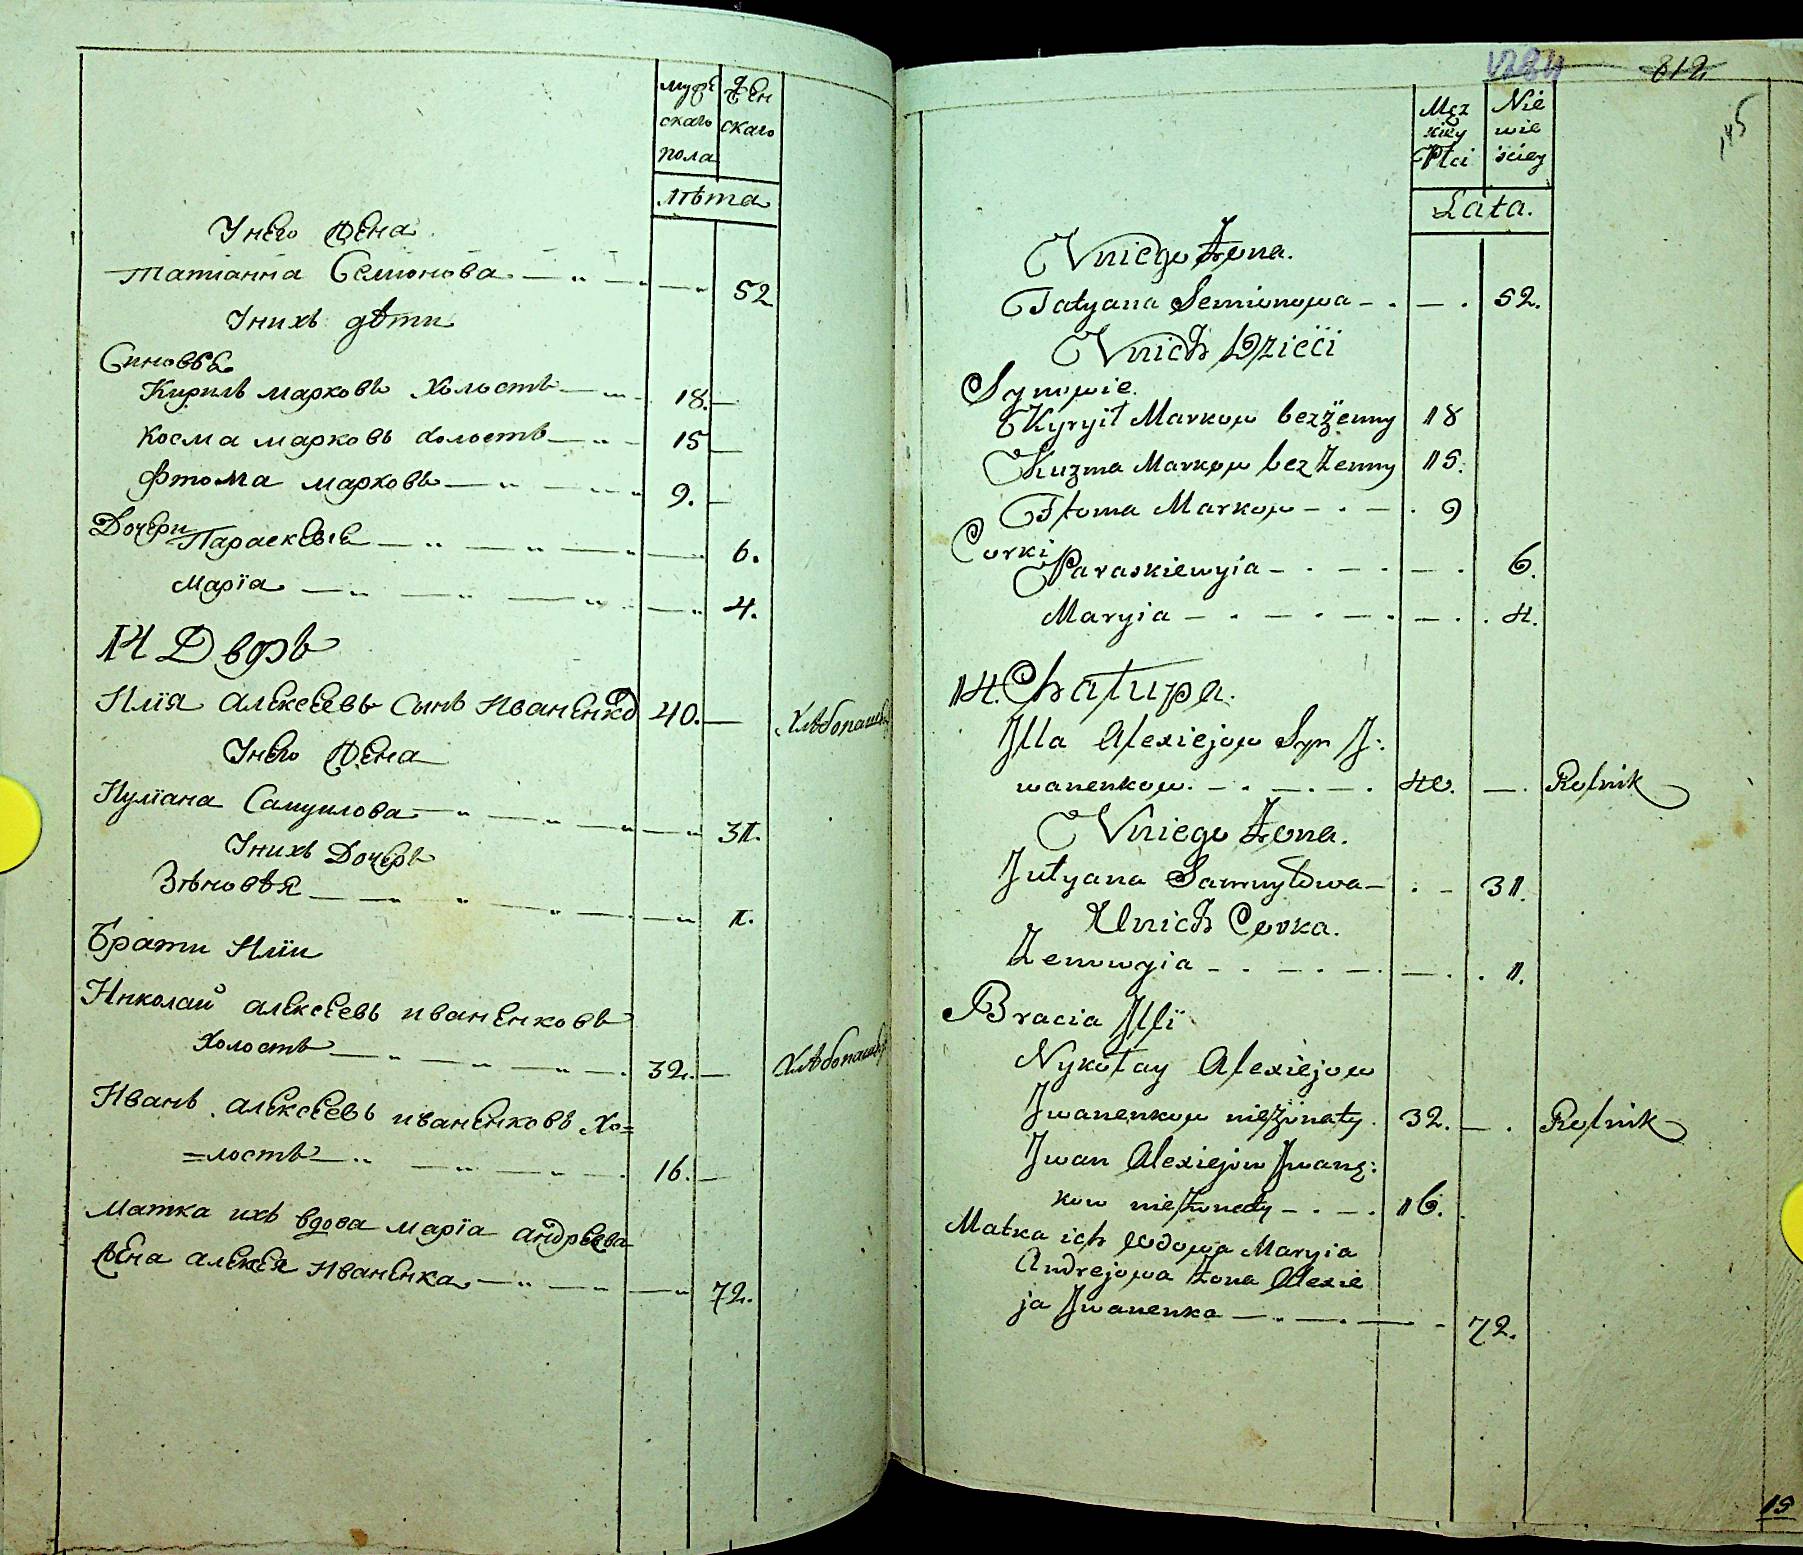 мужескаго пола
женскаго
лѣта
Унего жена
татіанна Семионова — " — " — " 52
Унихъ дѣти
Синовѣ
Кирилъ марковъ холостъ — " — 18. —
Косма марковъ холостъ — " — 15 —
Фтома марковъ — " — " 9. —
Дочери Параскевіе — " — " — " 6.
Марїа — " — " — " 4.
14 Двфъ
Илїя Алексеевъ сынъ Иваненко 40. — Хлѣбопашецъ
Унего жена
Иулїана Самуилова — " — " — " 31.
Унихъ Дочеръ
Зѣновѣя — " — " — " 1.
Брати Илїи
Николай алексеевъ иваненковъ
холостъ — " — " — 32. — Хлѣбопашецъ
Иванъ алексеевъ иваненковъ хо=
=лостъ — " — " — 16. —
Матка ихъ вдова марїа андреева
жена алексея Иваненка — " — " 72.
812
145
Męz
kiey
Płci
Nie
wie
ściey
Lata.
Vniego Żona.
Tatyana Semionowa — . — . 52.
Vnich Dzieći
Synowie.
Kyryił Markow bezżenny 18
Kuzma Markow bezżenny 15.
Ftoma Markow — . — . 9
Curki
Paraskiewyia — . — . — . 6.
Maryia — . — . — . 4.
14. Chałupa.
Illa Alexiejow Syn J:
wanenkow. — . — . 40. — . Rolnik
Vniego Żona.
Julyana Samuyłowa — . — 31.
Unich Corka.
Zenowyia — . — . — . 1.
Bracia Illï
Nykołay Alexiejow
Jwanenkow nieżonaty. 32. — . Rolnik
Jwan Alexiejow Jwanę:
kow nieżonaty — . — . 16.
Matka ich wdowa Maryia
Andrejowa żona Alexie
ja Jwanenka — . — . — 72.
15